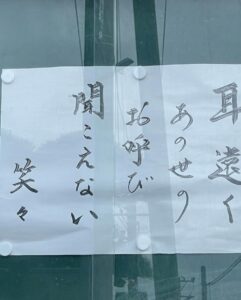 耳遠く
あのせの
お呼び
聞こえない
笑々